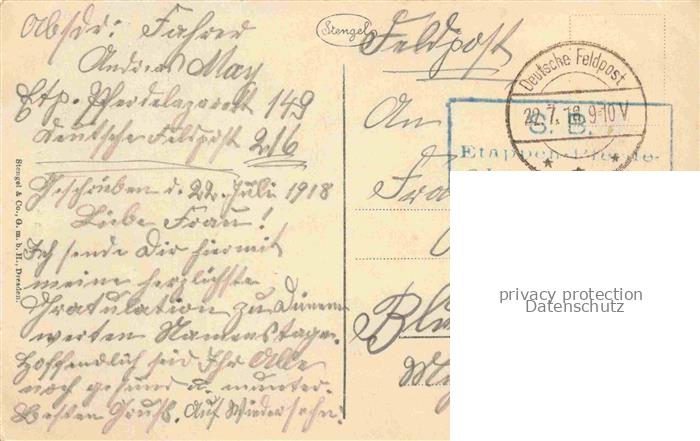 Absdr: Fahrer
Andreas May
Etp. Pferdelazarett 149
Deutsche Feldpost 216
Geschrieben d. 22. Juli 1918
Liebe Frau!
Ich sende Dir hiermit
meine herzlichste
Gratulation zu Deinem
werten Namenstage.
Hoffendlich seid Ihr Alle
noch gesund u. munter.
Besten Gruß. Auf Wiedersehn!
Stengel & Co., G. m. b. H., Dresden.
Stengel
Feldpost
An
Deutsche Feldpost
22.7.18 9-10 V
S. B.
Etappen-Pferde-
privacy protection
Datenschutz